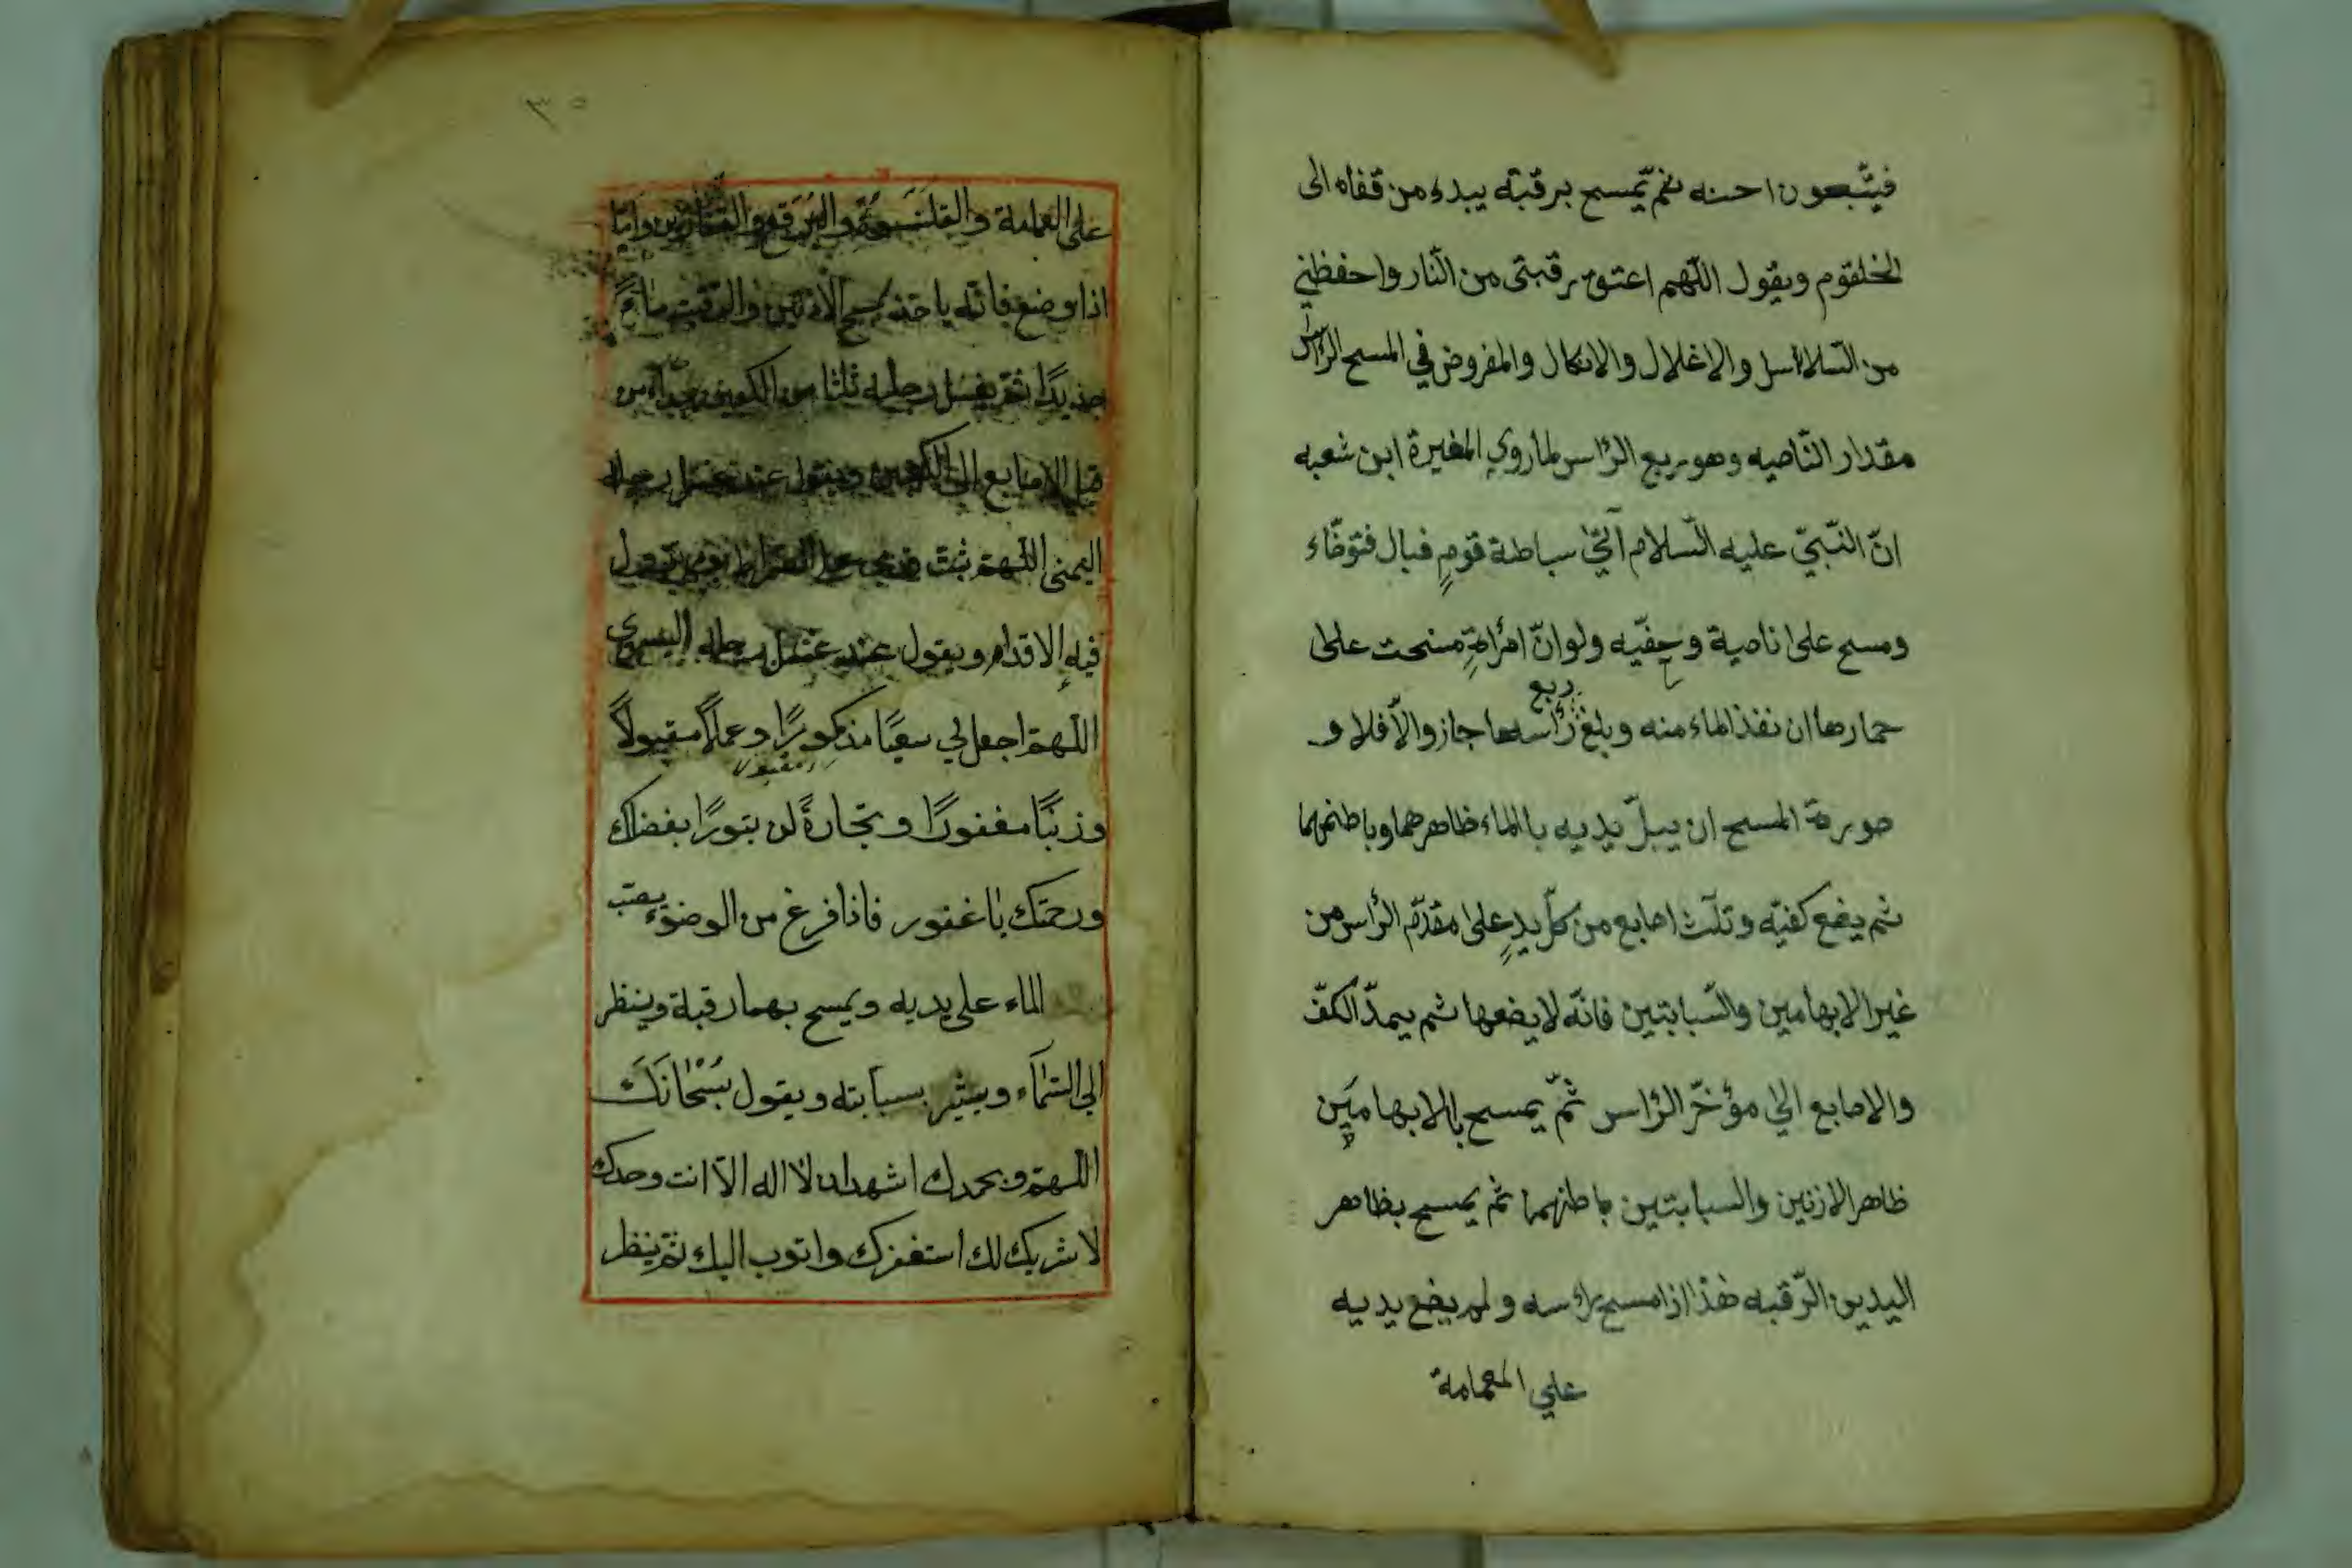 فيتّبعون احسنه ثمّ يمسح برقبته يبدء من قفاه الى
الخلقوم ويقول اللّهم اعتق رقبتى من النّار واحفظني
من السّلااسل والاغلال والانكال والمفروض في المسح الرّاس
مقدار النّاصيه وهو ربع الرّاس لماروي المغيرة ابن شعبه
انّ النّبيّ عليه السّلام اتيٰ سباطة قومٍ فبال فتوضّاء
ومسح علىٰ ناصية وخفّيه ولوانّ امرأةٍ مسحت علىٰ
ربع
حمارها ان نفذ الماء منه وبلغ رأسها جاز والّا فلا و
صورة المسح ان يبلّ يديه باالماء ظاهرهما وباطنهما
ثم يضع كفيّه وثلٰث اصابع من كلّ يدٍ علىٰ مقدّم الرّاس من
غير الابهامين والسّبابتين فانّه لايضعها ثم يمدّ الكفّ
والاصابع الي مؤخّر الرّاس ثمّ يمسح باالابهامين
ظاهر الازنين والسبابتين باطنهما ثم يمسح بظاهر
اليدين الرّقبه هٰذا اذا مسح راسه ولم يضع يديه
علي المعمامة
٣٥
على العمامة والقلنسوة والبرقع والقفازين وامّا
اذا وضع فانّه ياخذ لمسح الاذنين والرقبة ماءً
جديدًا ثمّ يغسل رجليه ثلثا من الكعبين
قبل الاصابع الى الكعبين ويقول عند غسل رجله
اليمنى اللّهمّ ثبّت قدمي على الصراط يوم تزول
فيهِ الاقدام ويقول عند غسل رجله اليسرى
اللّهمّ اجعل لي سعيًا مذكورًا وعملًا مقبولًا
وزنبًا مغفورًا وتجارةً لن بتورًا بفضلك
ورحمتك يا غفور فاذا فرغ من الوضوء يصب
الماء على يديه ويمسح بهما رقبة وينظر
الى السّمآء ويشير بسبابته ويقول سُبْحٰانَكَ
اللّهمّ وبحمدك اشهدان لا اله الّا انت وحدك
لا شريك لك استغفرك واتوب اليك ثمّ ينظر